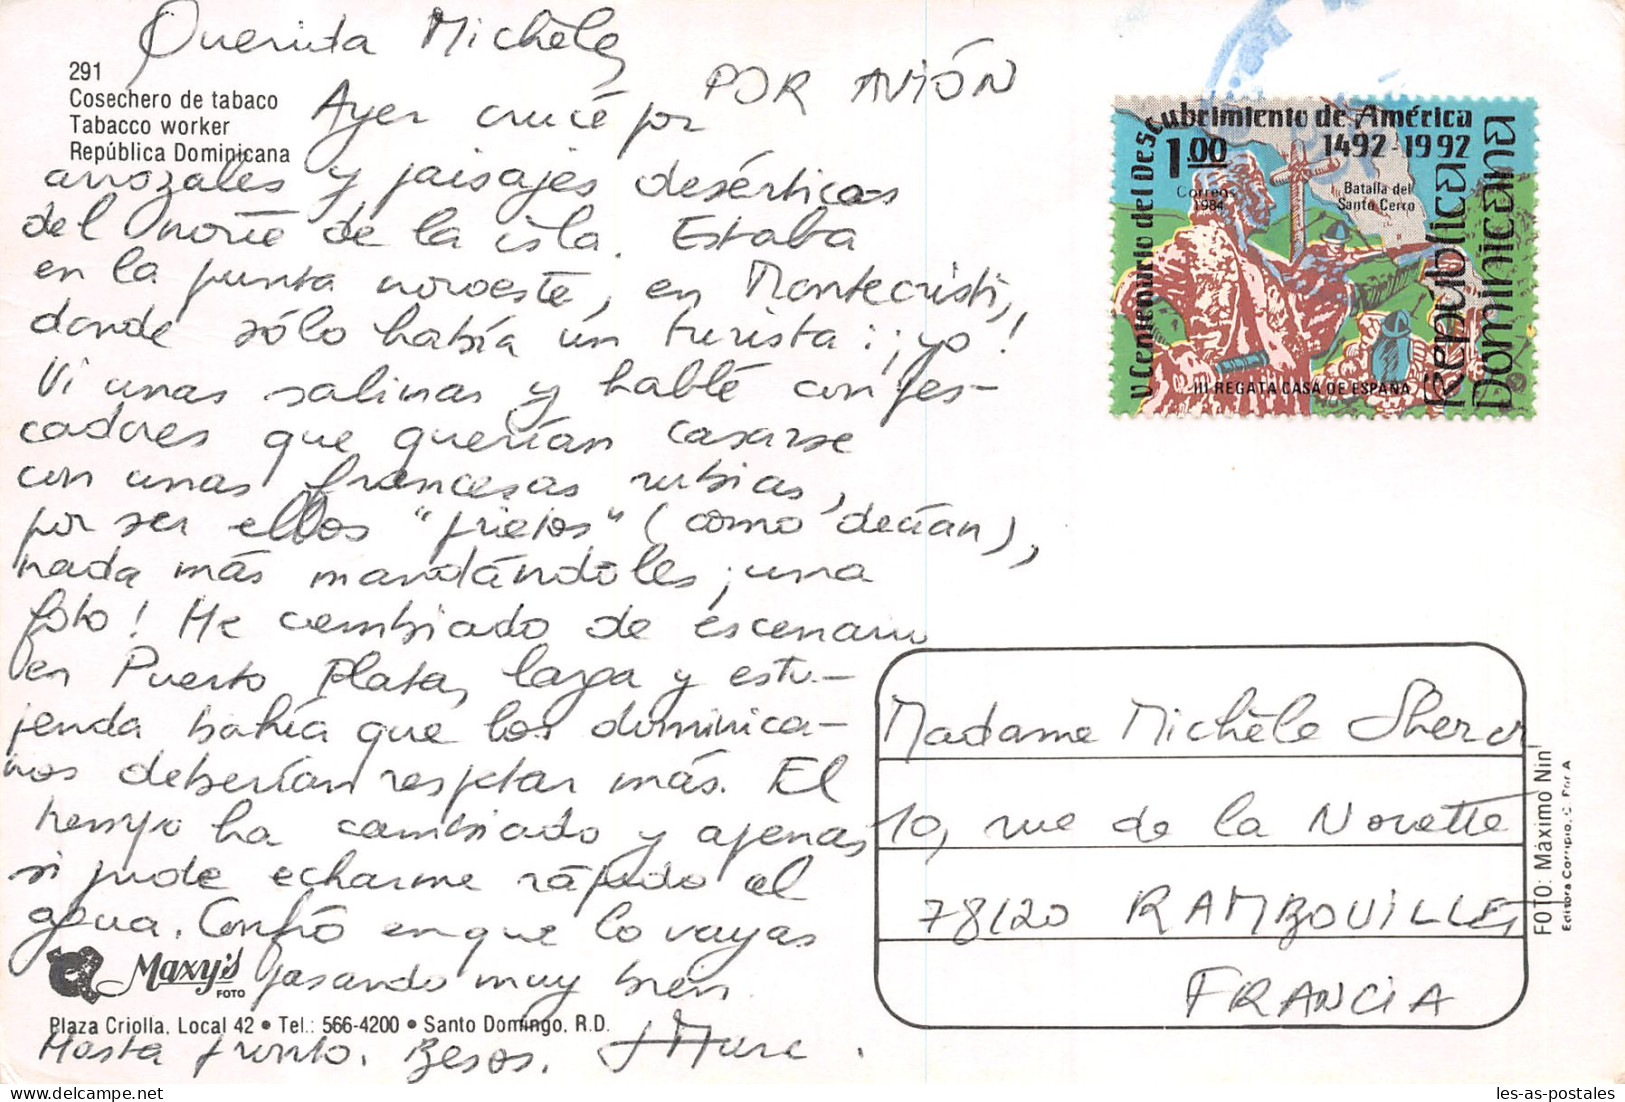 Querida Michèle,
POR AVIÓN
291
Cosechero de tabaco
Tabacco worker
República Dominicana
Ayer crucé por
arrozales y paisajes desérticos
del norte de la isla. Estaba
en la punta noroeste, en Montecristi,
donde sólo había un turista: ¡yo!
Vi unas salinas y hablé con pes-
cadores que querían casarse
con unas francesas rubias,
por ser ellos "prietos" (como decían),
nada más mandándoles ¡una
foto! He cambiado de escenario
en Puerto Plata, larga y estu-
penda bahía que los dominica-
nos deberían respetar más. El
tiempo ha cambiado y apenas
si pude echarme rápido al
agua. Confío en que lo vayas
pasando muy bien.
Hasta pronto. Besos. Marc.
Maxy's
FOTO
Plaza Criolla, Local 42 • Tel.: 566-4200 • Santo Domingo, R.D.
V Centenario del Descubrimiento de América
1492-1992
1.00
Correos
1984
Batalla del
Santo Cerro
III REGATA CASA DE ESPAÑA
República
Dominicana
Madame Michèle
10, rue de la
78120 RAMBOUILLET
FRANCIA
FOTO: Máximo Nin
Editora Corripio, C. por A
les-as-postales